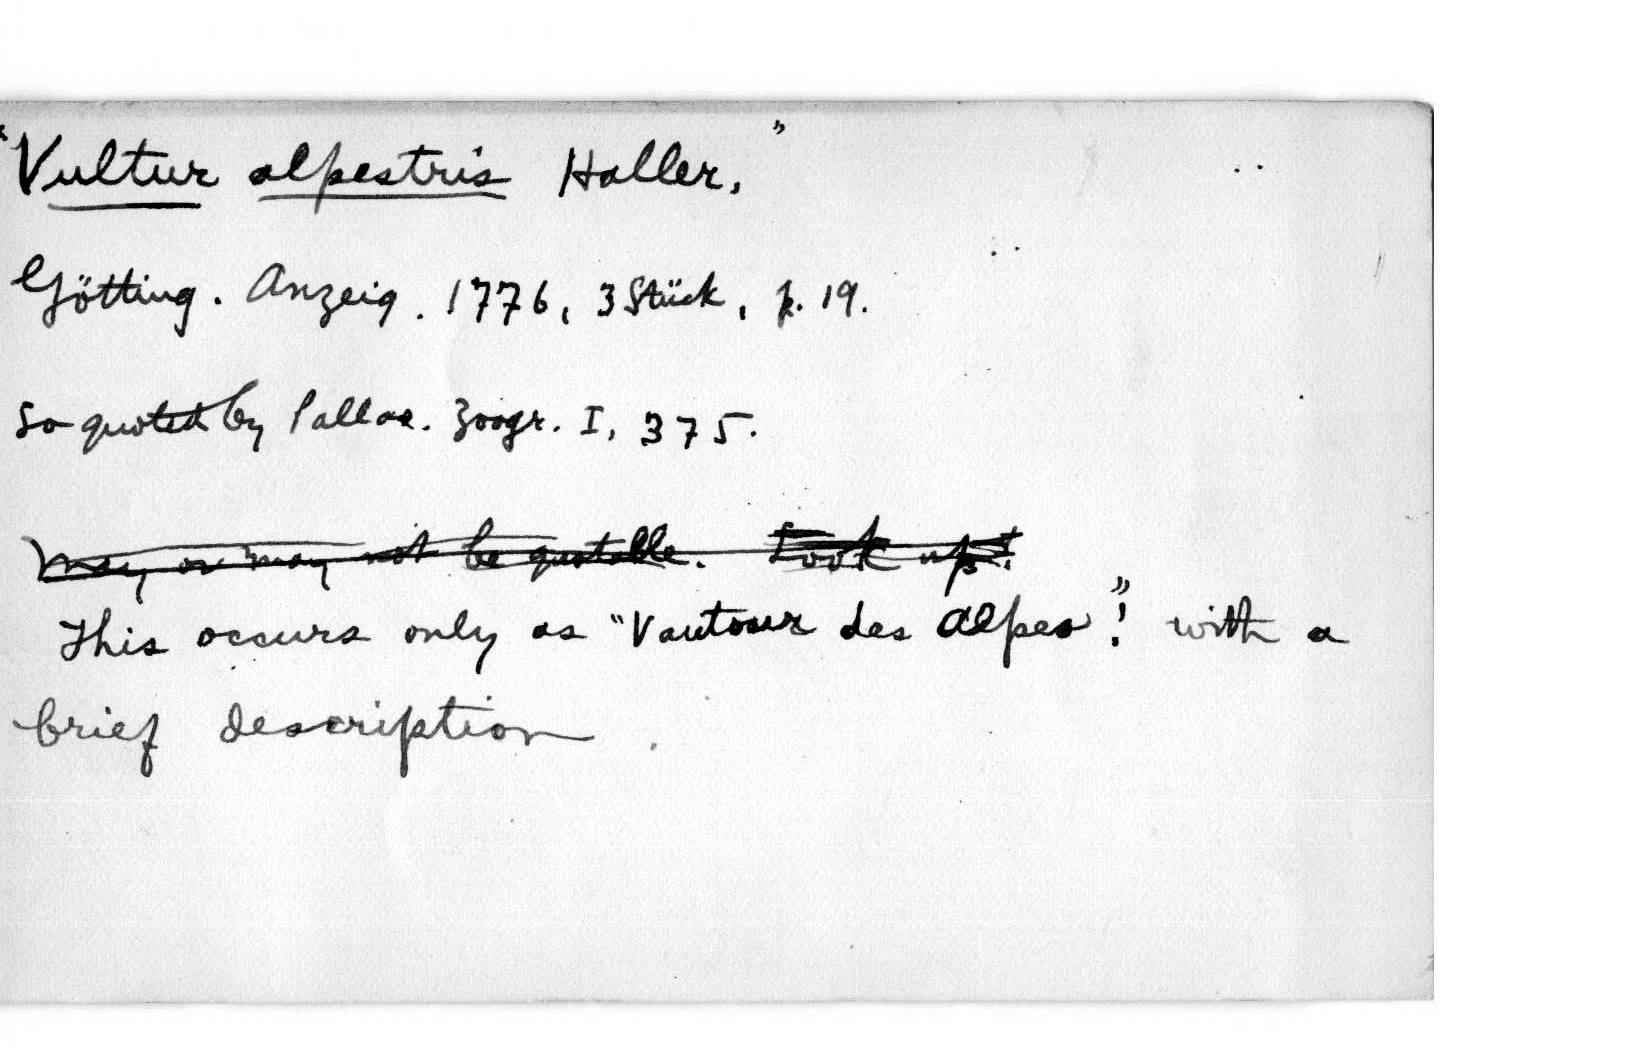 "Vultur alpestris Haller,"
Götting. Anzeig. 1776, 3 Stück, p. 19.
So quoted by Pallas. Zoogr. I, 375.
May or may not be quotable. Look up!
This occurs only as "Vautour des Alpes"! with a
brief description.